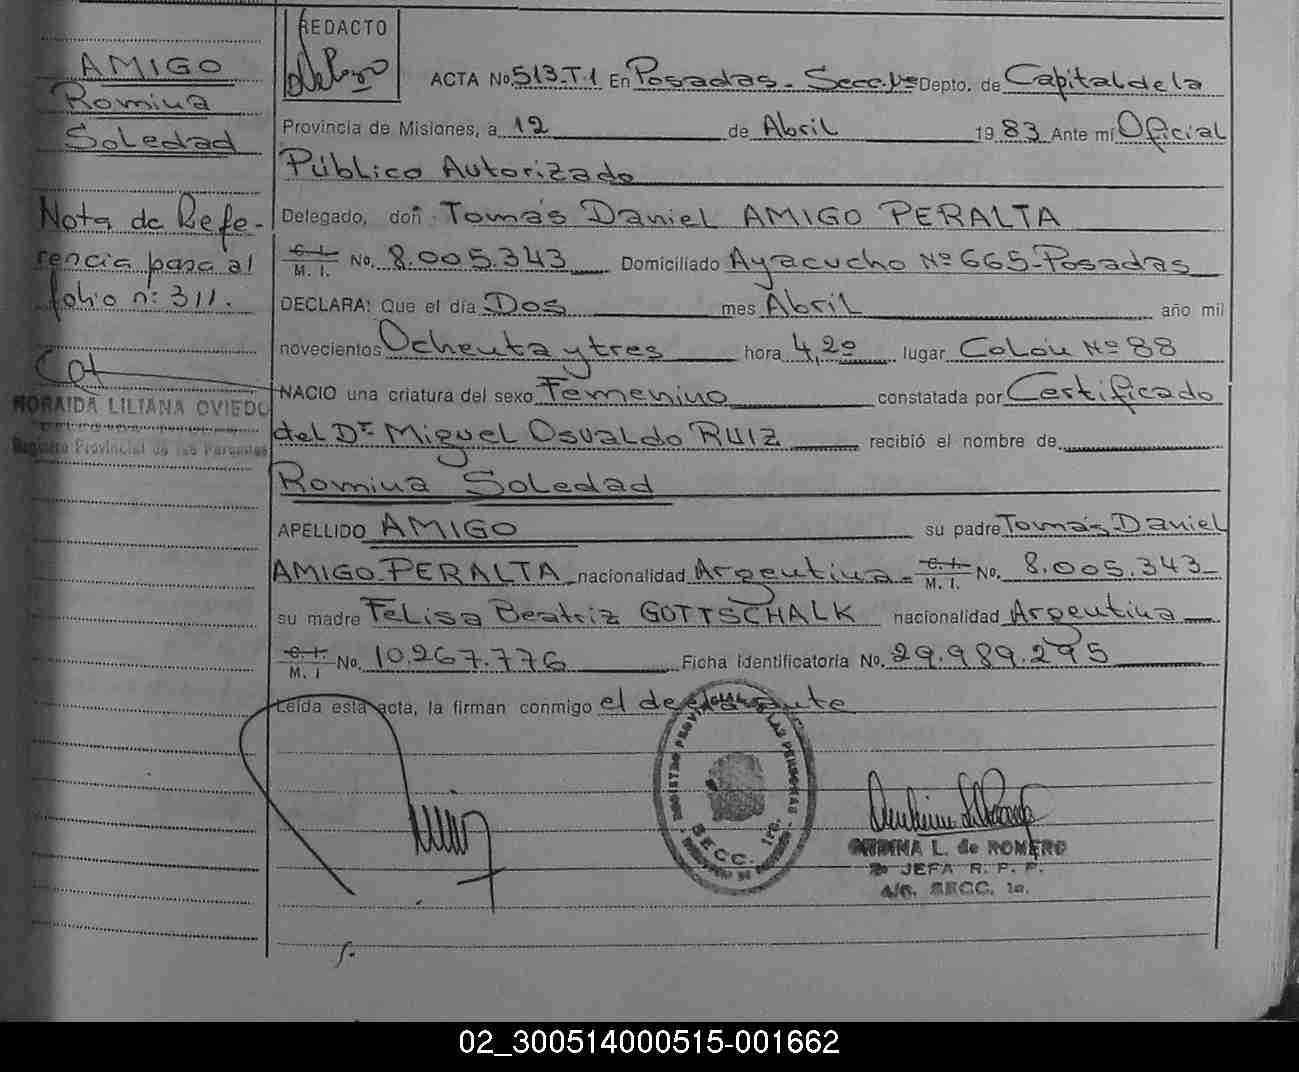 AMIGO
Romina
Soledad
Nota de Refe-
rencia pasa al
folio nº 311.
NORAIDA LILIANA OVIEDO
Registro Provincial de las Personas
REDACTO
ACTA No. 513-T.1 En Posadas. Secc. 1ª Depto. de Capital de la
Provincia de Misiones, a 12 de Abril 1983 Ante mí Oficial
Público Autorizado
Delegado, don Tomás Daniel AMIGO PERALTA
C. I.
M. I. No. 8.005.343 Domiciliado Ayacucho Nº 665-Posadas
DECLARA: Que el día Dos mes Abril año mil
novecientos Ochenta y tres hora 4,20 lugar Colón Nº 88
NACIO una criatura del sexo Femenino constatada por Certificado
del Dr. Miguel Osvaldo RUIZ recibió el nombre de
Romina Soledad
APELLIDO AMIGO su padre Tomás Daniel
AMIGO PERALTA nacionalidad Argentina - C. I.
M. I. No. 8.005.343
su madre Felisa Beatriz GOTTSCHALK nacionalidad Argentina
C. I.
M. I No. 10.267.776 Ficha identificatoria No. 29.989.295
Leída esta acta, la firman conmigo el declarante
REGISTRO PROVINCIAL DE LAS PERSONAS
SECC. 1ra.
ONDINA L. de ROMERO
JEFA R. P. P.
A/C. SECC. 1a.
02_300514000515-001662